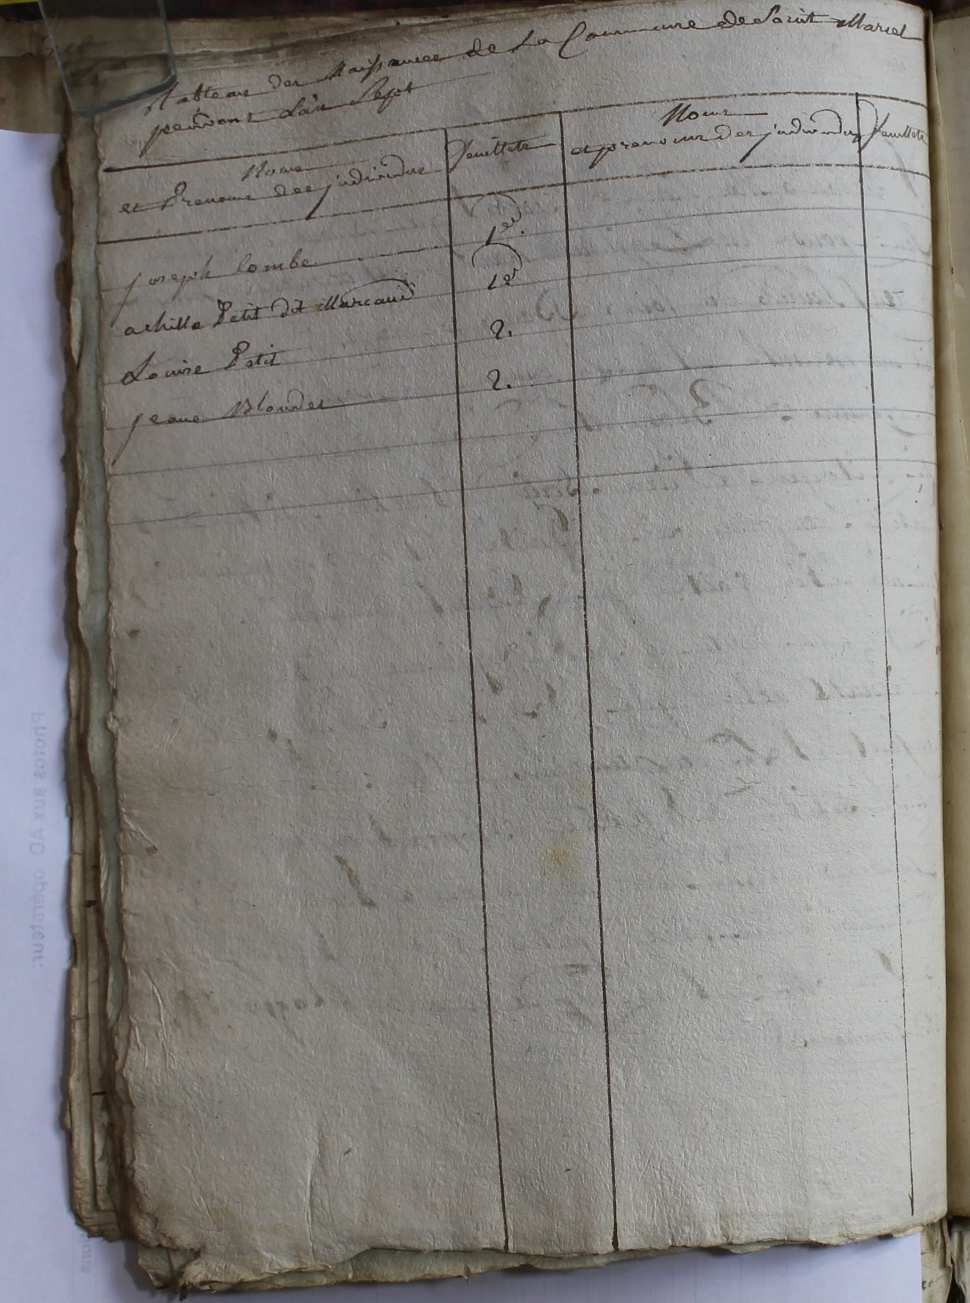 Tableau des Naissances de La Commune de Saint Marcel
pendant L'an Sept
Noms
et Prenoms des jndividus
feuillets
Noms
et prenoms des jndividus
feuillets
joseph Combe 1er.
achille Petit dit Marcaud 1er
Louise Petit 2.
jeane Blondet 2.
Photos aux AD opérateur: